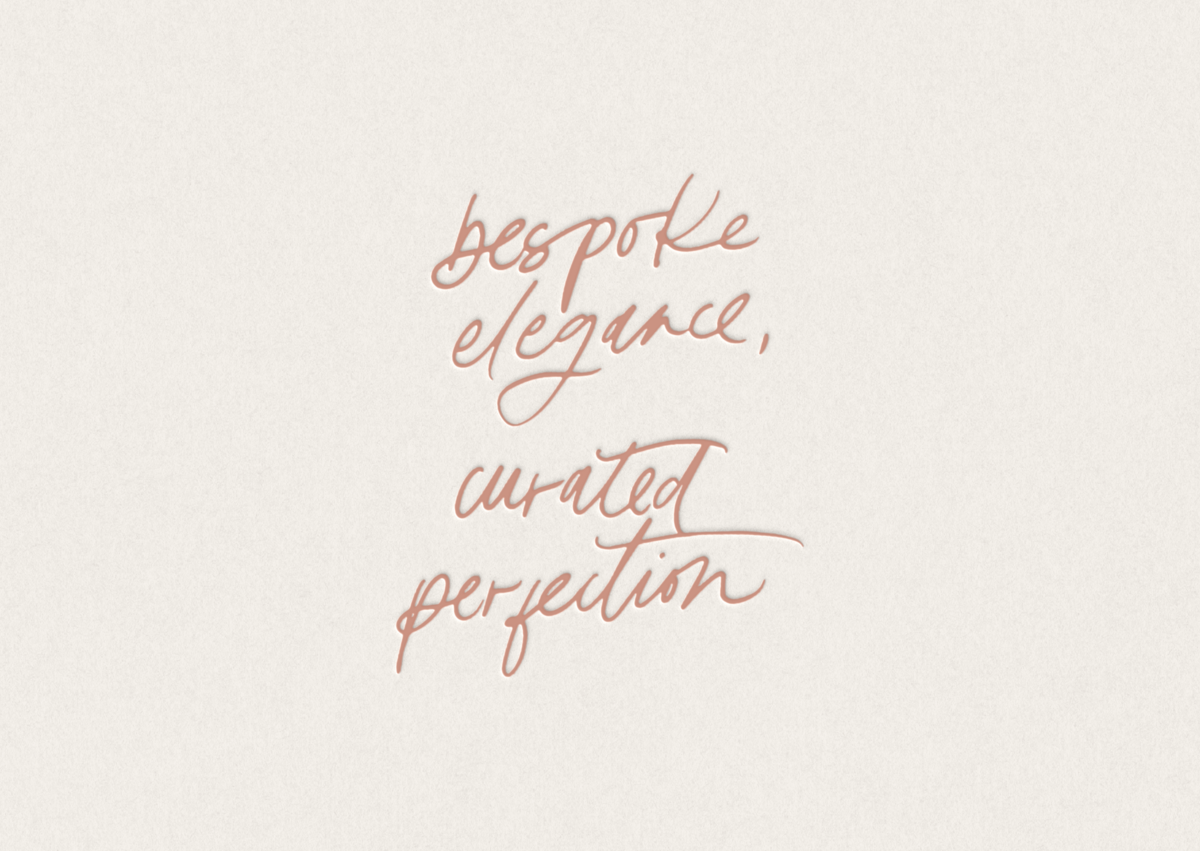 bespoke
elegance,
curated
perfection